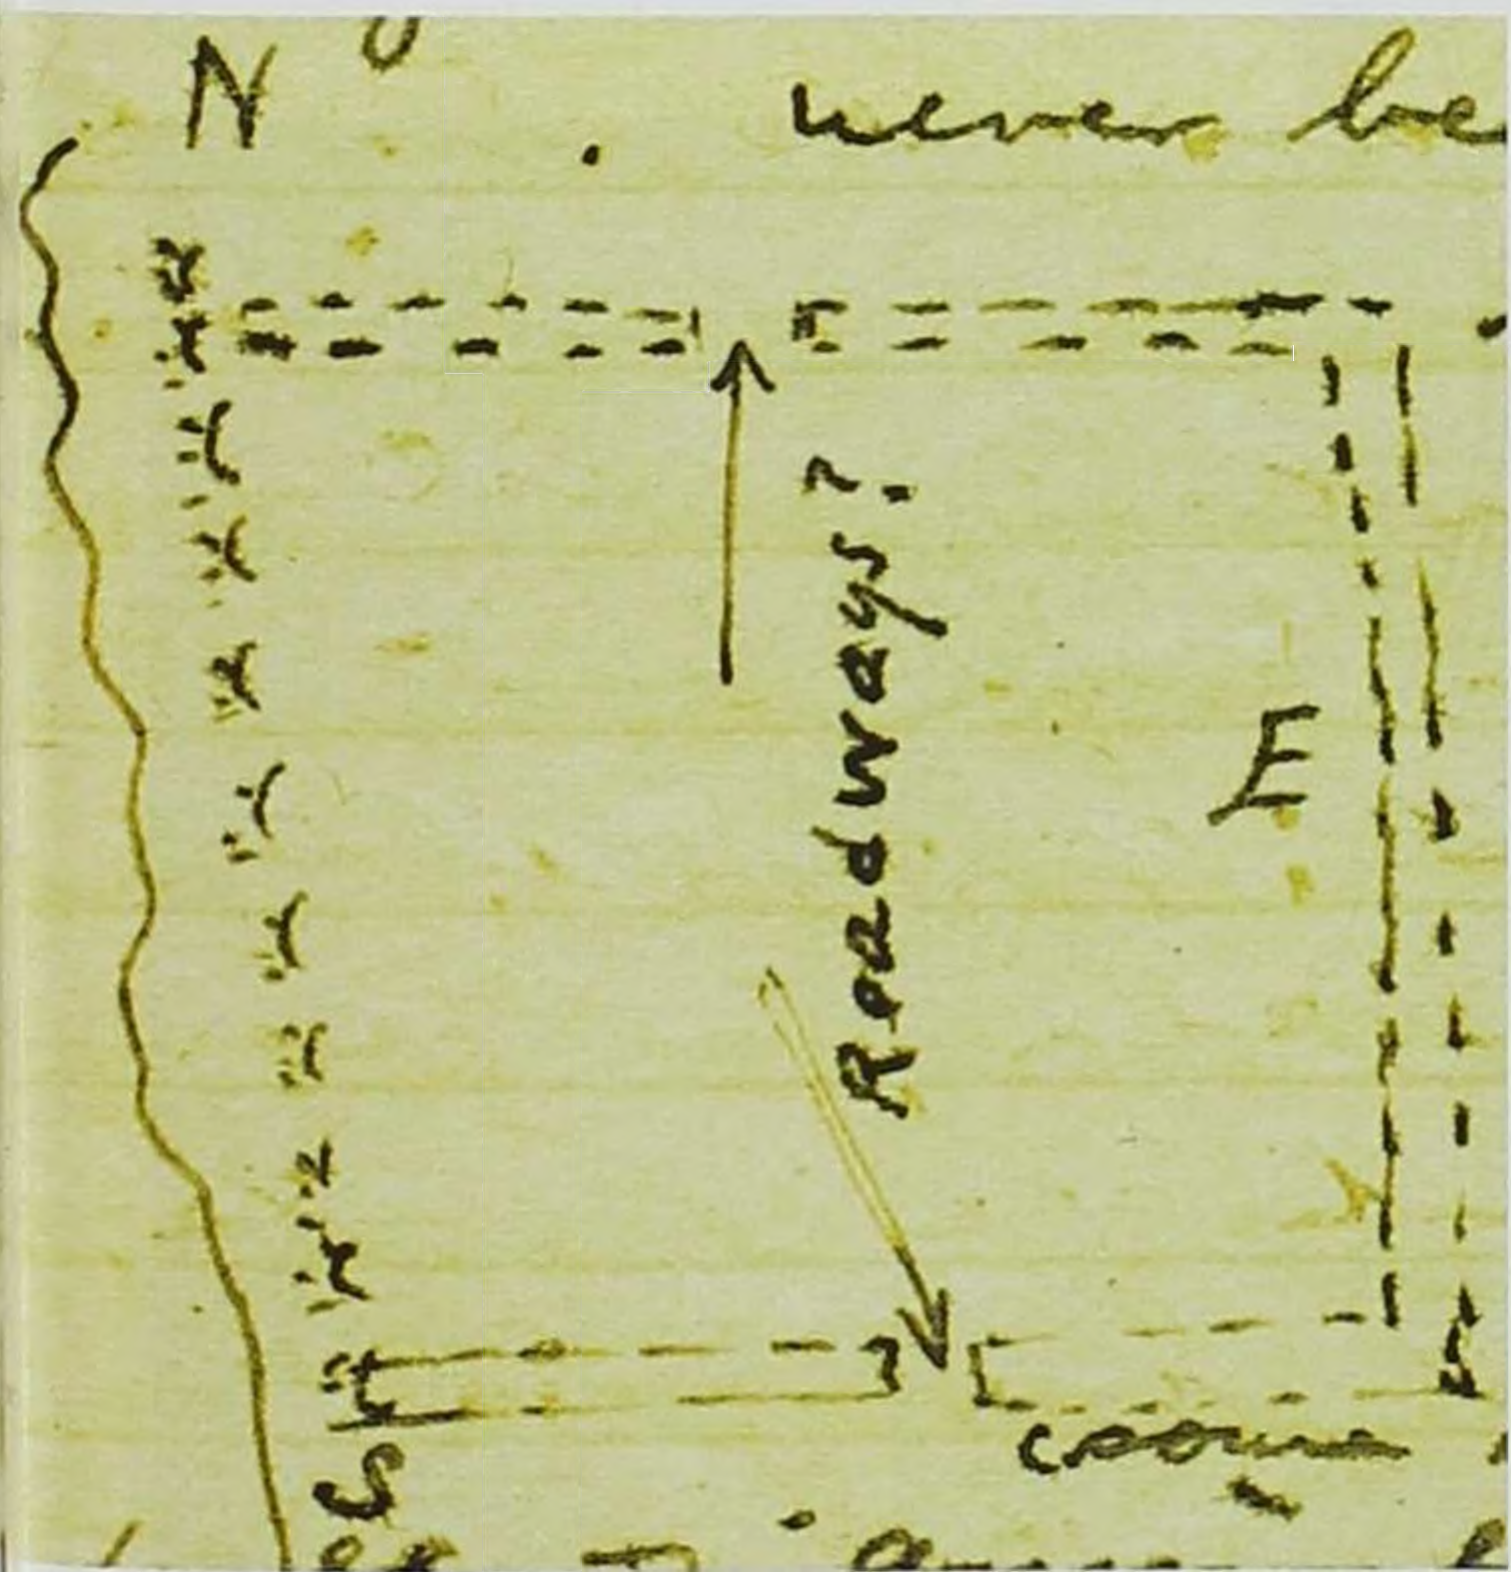 N
never be
Roadways?
E
S